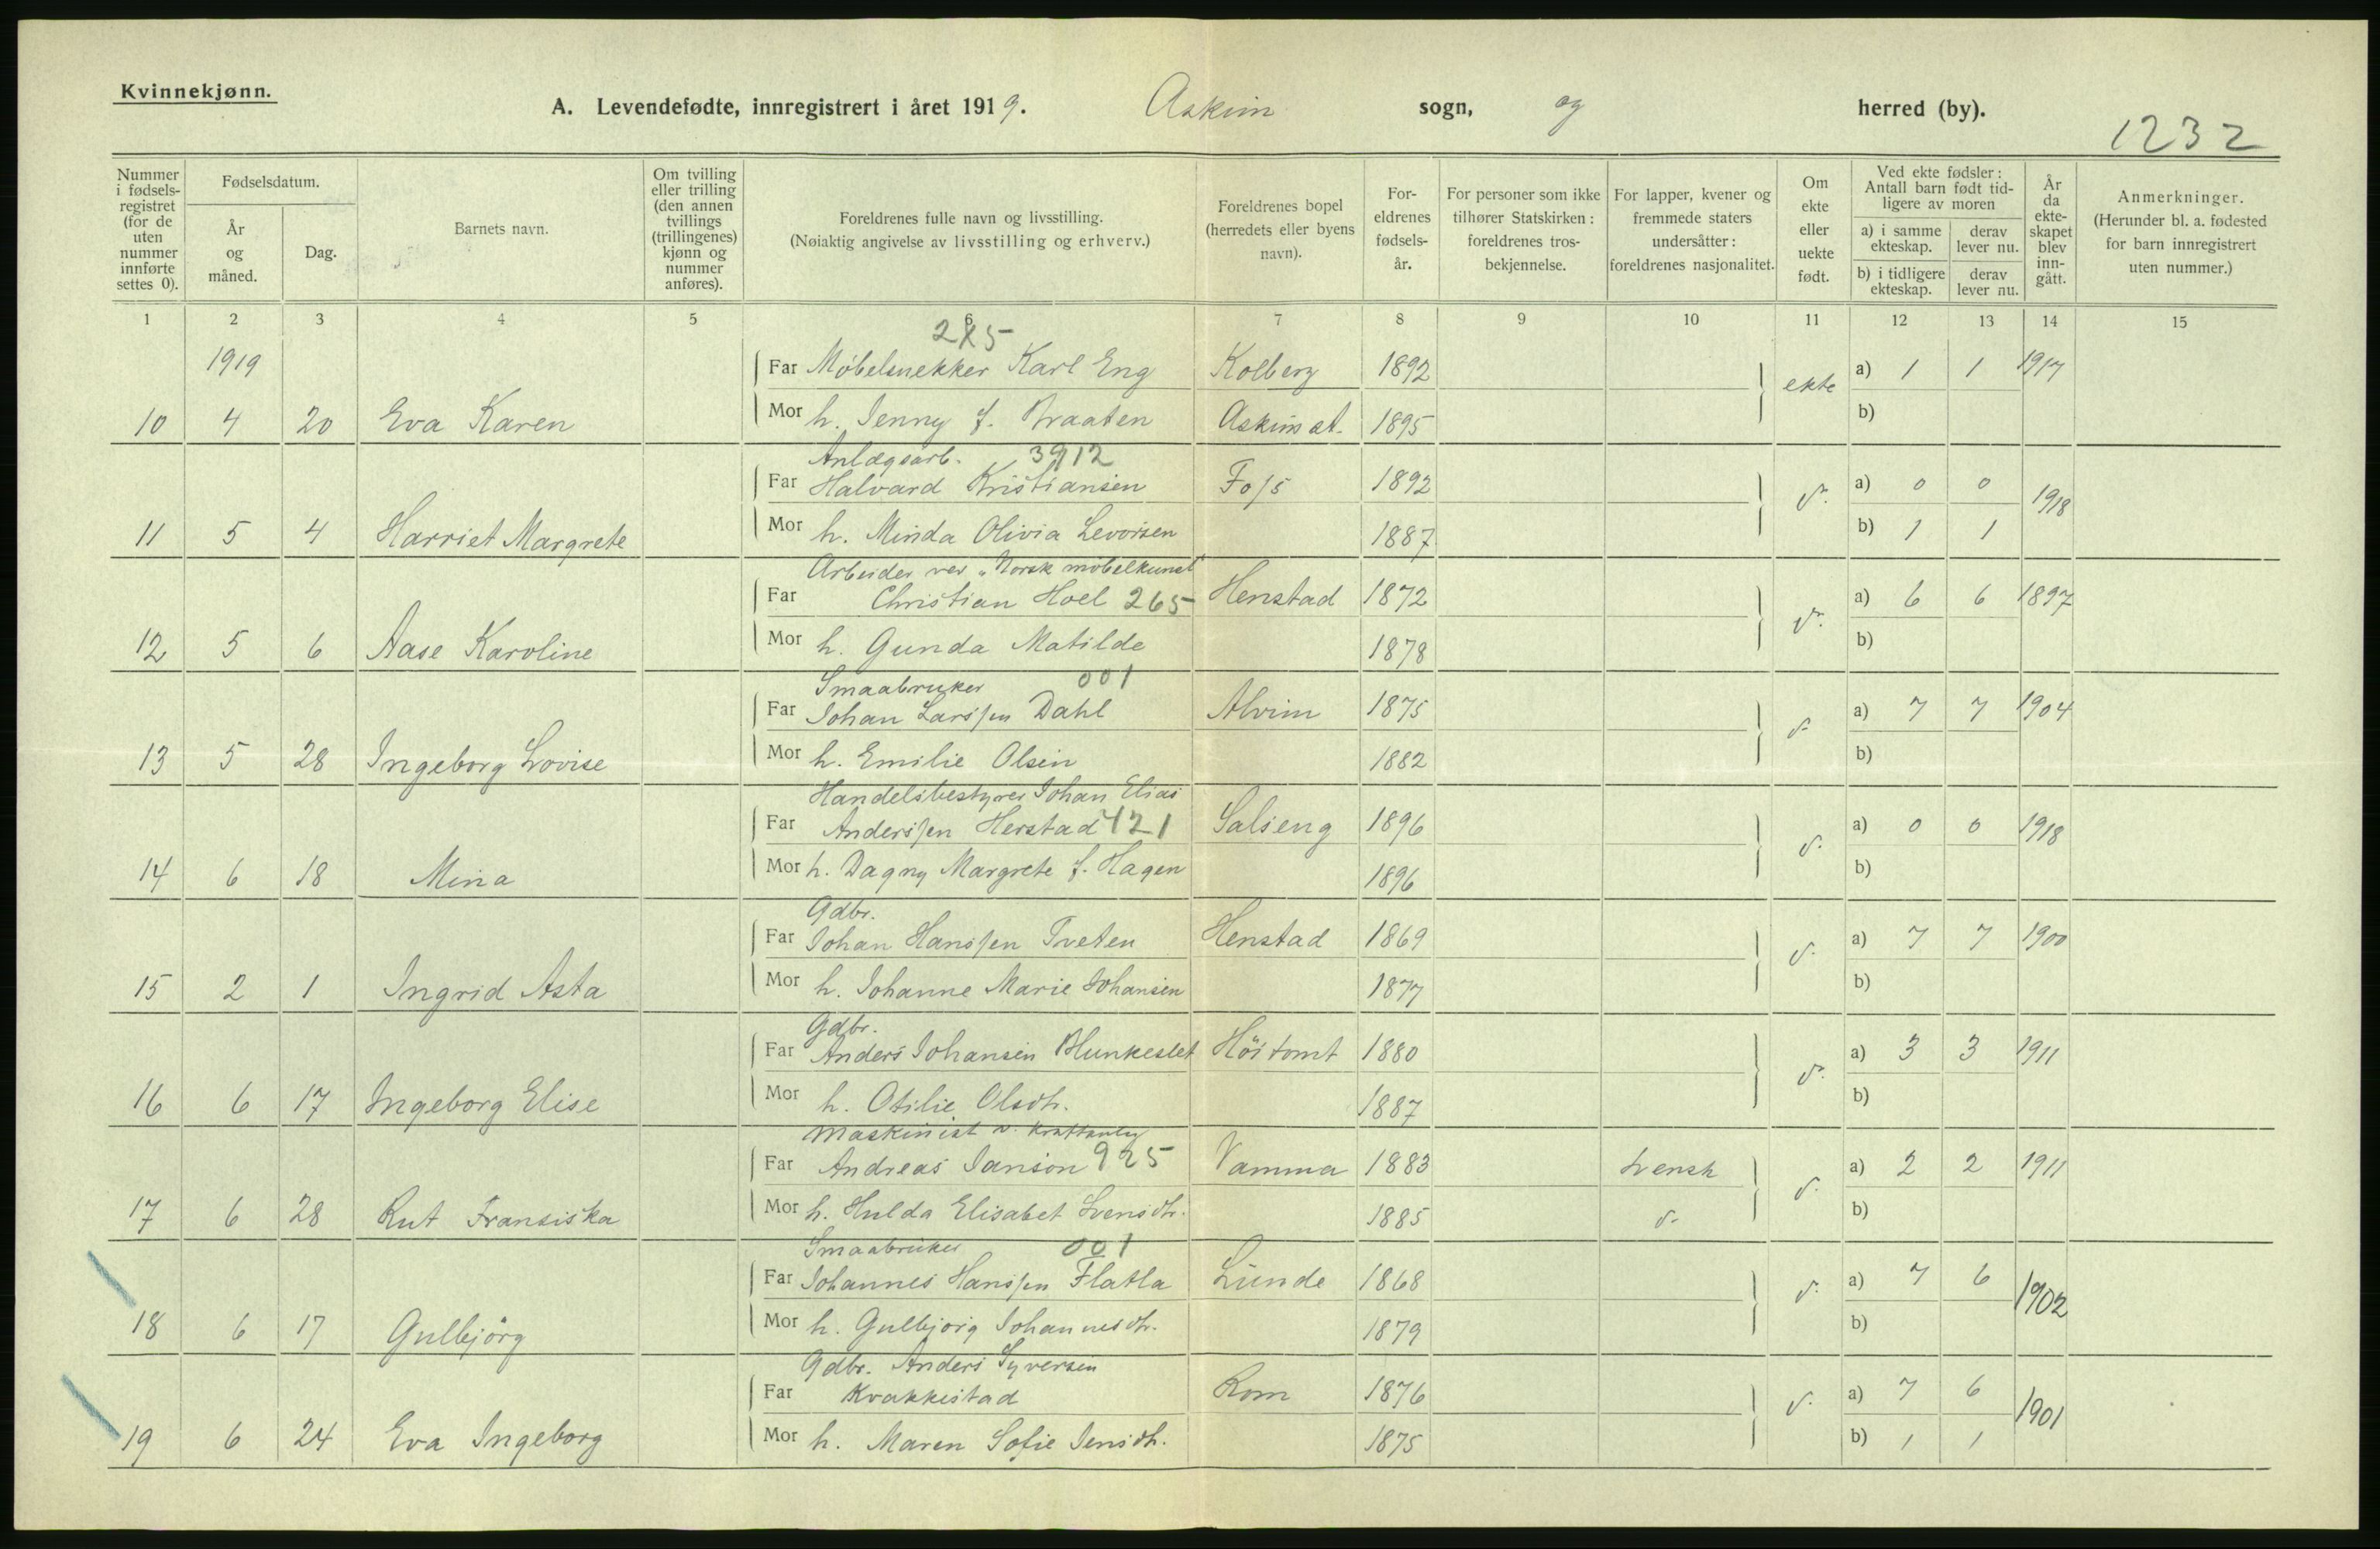 Kvinnekjønn.
A. Levendefødte, innregistrert i året 1919. Askim sogn, og herred (by).
1232
Nummer i fødsels-registret (for de uten nummer innførte settes 0).
Fødselsdatum.
År og måned.
Dag.
Barnets navn.
Om tvilling eller trilling (den annen tvillings (trillingenes) kjønn og nummer anføres).
Foreldrenes fulle navn og livsstilling.
(Nøiaktig angivelse av livsstilling og erhverv.)
Foreldrenes bopel (herredets eller byens navn).
For-eldrenes fødsels-år.
For personer som ikke tilhører Statskirken: foreldrenes tros-bekjennelse.
For lapper, kvener og fremmede staters undersåtter: foreldrenes nasjonalitet.
Om ekte eller uekte født.
Ved ekte fødsler: Antall barn født tid-ligere av moren
a) i samme ekteskap.
derav lever nu.
b) i tidligere ekteskap.
derav lever nu.
År da ekte-skapet blev inn-gått.
Anmerkninger.
(Herunder bl. a. fødested for barn innregistrert uten nummer.)
1 2 3 4 5 6 7 8 9 10 11 12 13 14 15
1919
Far Møbelsnekker Karl Eng Kolberg 1892 ekte a) 1 1 1917
10 4 20 Eva Karen Mor h. Jenny f. Braaten Askim st. 1895 b)
Anlægsarb. 3912
Far Halvard Kristiansen Foss 1892 a) 0 0 1918
11 5 4 Harriet Margrete Mor h. Minda Olivia Levorsen 1887 b) 1 1
Arbeider ved "Norsk møbelkunst"
Far Christian Hoel 265 Henstad 1872 a) 6 6 1897
12 5 6 Aase Karoline Mor h. Gunda Matilde 1878 b)
Smaabruker 001
Far Johan Larssen Dahl Alvim 1875 a) 7 7 1904
13 5 28 Ingeborg Lovise Mor h. Emilie Olsen 1882 b)
Handelsbestyrer Johan Elias
Far Anderssen Herstad 421 Galseng 1896 a) 0 0 1918
14 6 18 Mina Mor h. Dagny Margrete f. Hagen 1896 b)
Gdbr.
Far Johan Hanssen Tveten Henstad 1869 a) 7 7 1900
15 2 1 Ingrid Asta Mor h. Johanne Marie Johansen 1877 b)
Gdbr.
Far Anders Johansen Blunkeslet Höitomt 1880 a) 3 3 1911
16 6 17 Ingeborg Elise Mor h. Otilie Olsdtr. 1887 b)
Maskinist v. Kraftanlæg
Far Andreas Janson 925 Vamma 1883 svensk a) 2 2 1911
17 6 28 Rut Fransiska Mor h. Hulda Elisabet Svensdtr. 1885 b)
Smaabruker 001
Far Johannes Hanssen Flatla Lunde 1868 a) 7 6 1902
18 6 17 Gulbjörg Mor h. Gulbjörg Johannesdtr. 1879 b)
Gdbr. Anders Syversen
Far Kvakkestad Rom 1876 a) 7 6 1901
19 6 24 Eva Ingeborg Mor h. Maren Sofie Jensdtr. 1875 b) 1 1